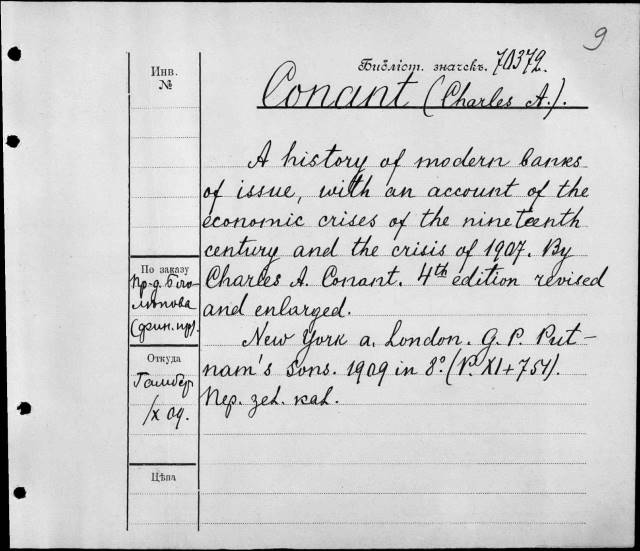 9
Библіот. значекъ. 70372.
Conant (Charles A.).
Инв.
№
A history of modern banks
of issue, with an account of the
economic crises of the nineteenth
century and the crisis of 1907. By
Charles A. Conant. 4th edition revised
and enlarged.
New York a. London. G. P. Put-
nam's sons. 1909 in 8º. (P. XI+751).
Пер. зел. кал.
По заказу
пр-д. Бого
лѣпова
(фин. пр).
Откуда
/X 09.
Цѣна